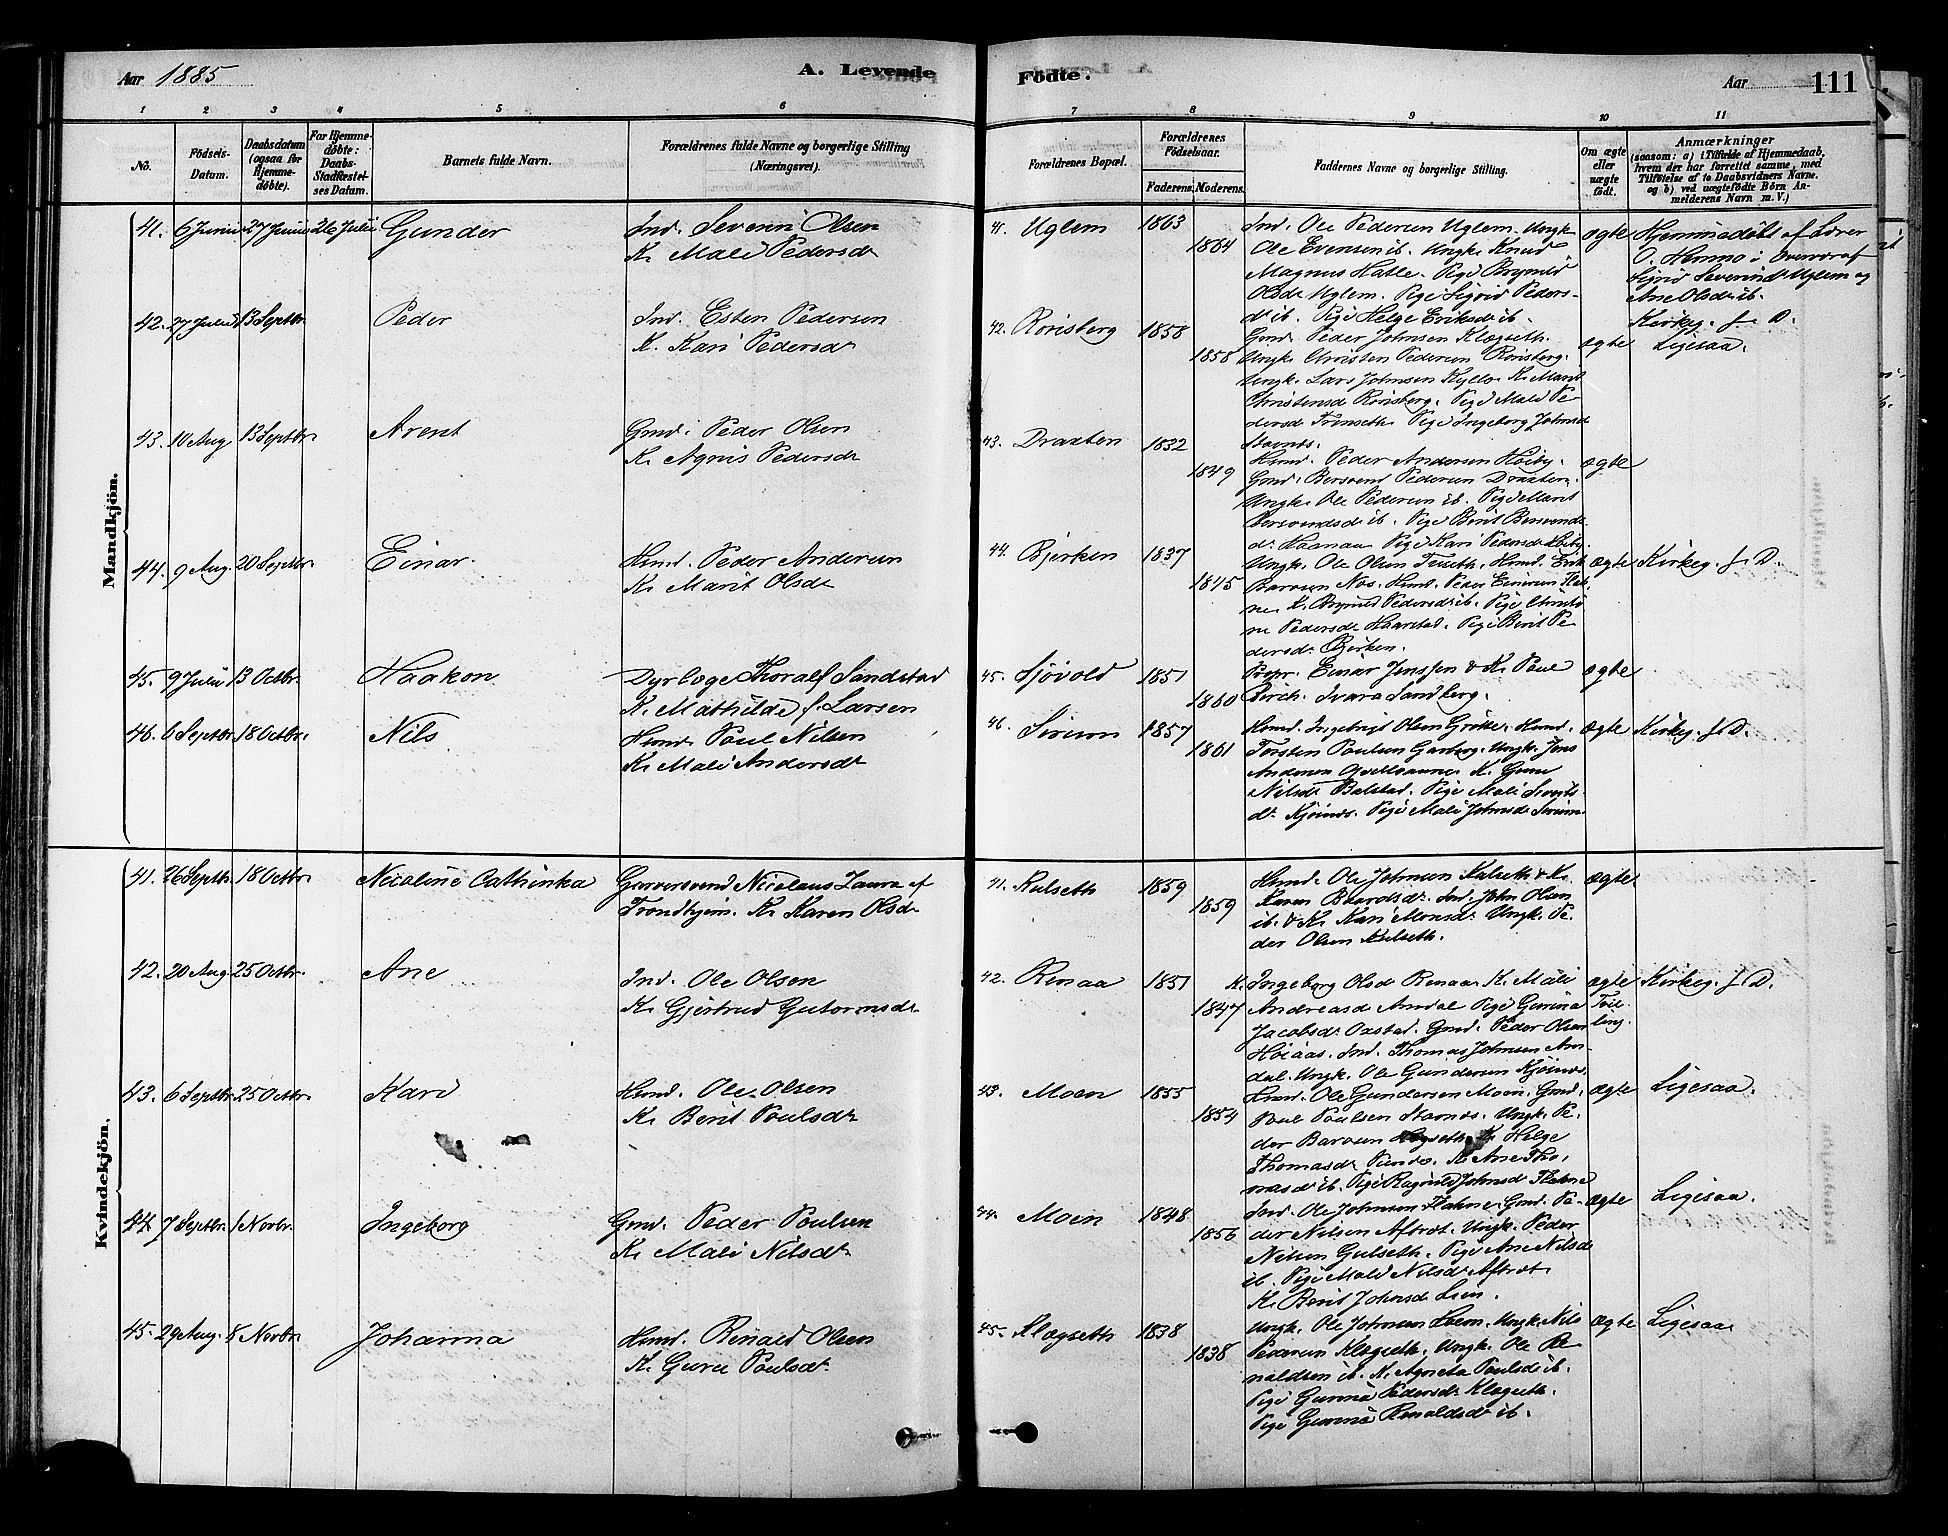 Aar 1885
A. Levende
Födte.
Aar
111
1 2 3 4 5 6 7 8 9 10 11
No.
Födsels-
Datum.
Daabsdatum
(ogsaa for
Hjemme-
døbte).
For Hjemme-
døbte:
Daabs-
Stadfæstel-
ses Datum.
Barnets fulde Navn.
Forældrenes fulde Navne og borgerlige Stilling
(Næringsvei).
Forældrenes Bopæl.
Forældrenes
Födselsaar.
Faderens. Moderens.
Faddernes Navne og borgerlige Stilling.
Om ægte
eller
uægte
födt.
Anmærkninger
(saasom: a) i Tilfælde af Hjemmedaab,
hvem der har forrettet samme, med
Tilföielse af to Daabsvidners Navne.
og b) ved uægtefödte Börn An-
melderens Navn m. V.)
Mandkjön.
41. 6 Juni 27 Juni 26 Juli Gunder
Ind. Severin Olsen
K. Mali Pedersdr
41. Uglem 1863
1864
Ind. Ole Pedersen Uglem. Ungk.
Ole Evensen ib. Ungk. Knud
Magnus Hatle. Pige Brynild
Olsdr Uglem. Pige Sigrid Peders-
dr ib. Pige Helge Eriksdr ib.
ægte
Hjemmedöbt af Lærer
O. Hemmo i overvær af
Sigrid Severinsdr Uglem og
Ane Olsdr ib.
Kirkeg. f. D.
42. 27 Juli 13 Septbr. Peder
Ind. Esten Pedersen
K. Kari Pedersdr
42. Rönsberg 1858
1858
Gmd. Peder Johnsen Klægseth.
Ungk. Christen Pedersen Rönsberg.
Ungk. Lars Johnsen Kyllo. K. Marit
Christensd Rönsberg. Pige Mali Pe
dersd Trönseth. Pige Ingeborg Johnsd
Stavnes.
ægte
Ligesaa.
43. 10 Aug 13 Septbr. Arent
Gmd. Peder Olsen
K. Agnis Pedersdr
43. Draxten 1832
1849
Hmd. Peder Andersen Höiby.
Gmd. Bersvend Pedersen Draxten.
Ungk. Ole Pedersen ib. Pige Marit
Bersvendsd ib. Pige Berit Bersvends
dr Haanaa Pige Kari Pedersdr Höiby.
ægte
44. 9 Aug. 20 Septbr. Einar.
Hmd. Peder Andersen
K. Marit Olsdr
44. Bjerken 1837
1845
Ungk. Ole Olsen Trøseth. Hmd. Erik
Barosen Nos. Hmd. Peder Einersen Flak-
ne K. Brynild Pedersdr ib. Pige Christi
ne Pedersdr Haarstad. Pige Berit Pe
dersdr Bjerken.
ægte
Kirkeg. f. D.
45. 9 Juli 13 Octbr. Haakon
Dyrlæge Thoralf Sandstad
K. Mathilde f. Larsen
45. Sjövold 1851
1860
Propr. Einar Jenssen & K. Paul
Birch. Ivara Sandberg.
ægte
46. 6 Septbr. 18 Octbr. Nils
Hmd. Paul Nilsen
K. Mali Andersdr
46. Sirum 1857
1861
Hmd. Ingebrigt Olsen Grötte. Hmd.
Torsten Paulsen Garberg. Ungk. Jens
Andersen Qvellounne K. Guru
Nilsdr Balstad. Pige Mali Sivert
dr Kjösnes. Pige Mali Johnsdr Sirum.
ægte
Kirkeg. f. D.
Kvindekjön.
41. 26 Septbr. 18 Octbr. Nicoline Cathinka
Garversvend Nicolaus Laura af
Trondhjem. K. Karen Olsdr
41. Kulseth 1859
1859
Hmd. Ole Johnsen Kulseth & K.
Karen Baardsdr. Ind. John Olsen
ib. & K. Kari Monsdr Ungk. Pe
der Olsen Kulseth.
ægte
42. 20 Aug. 25 Octbr. Ane
Ind. Ole Olsen
K. Gjertrud Gutormsdr
42. Renaa 1851
1847
K. Ingeborg Olsd Renaa. K. Mali
Andreasd Amdal Pige Gurina
Jacobsdr Oxstad. Gmd. Peder Olsen
Höiaas. Ind. Thomas Johnsen Am-
dal. Ungk. Ole Gundersen Kjösnes.
ægte
Tvil-
ling.
Kirkeg. f. D.
43. 6 Septbr. 25 Octbr. Kari
Hmd. Ole Olsen
K. Berit Poulsdr
43. Moen 1855
1854
Hmd. Ole Gundersen Moen. Gmd.
Poul Poulsen Stavnes. Ungk. Pe-
der Barosen Hogseth. K. Helge
Thomasdr K. Ane Tho-
masdr ib. Pige Ragnild Johnsd Flakne
ægte
Ligesaa.
44. 7 Septbr. 1 Novbr. Ingeborg
Gmd. Peder Poulsen
K. Mali Nilsdr
44. Moen 1848
1856
Ind. Ole Johnsen Flakne. Gmd. Pe-
der Nilsen Aftrøt. Ungk. Peder
Nilsen Gulseth. Pige Ane Nilsd
ib. Pige Mali Nilsdr Aftrøt
K. Berit Johnsdr Lien.
ægte
Ligesaa.
45. 29 Aug. 8 Novbr. Johanna
Hmd. Renald Olsen
K. Guru Poulsdr
45. Klægseth 1838
1838
Ungk. Ole Johnsen Hoem. Ungk. Nils
Pedersen Klægseth. Ungk. Ole Re
naldsen ib. K. Agneta Poulsdr ib.
Pige Gurina Pedersdr Klægseth.
Pige Gurina Renaldsdr ib.
ægte
Ligesaa.